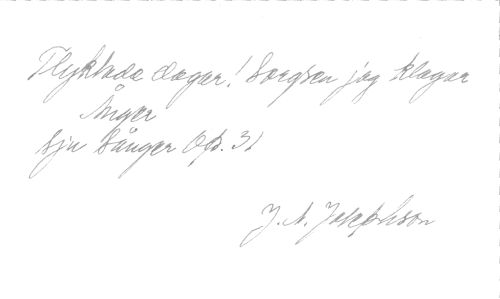 Flyktade dagar! Sorgsen jag klagar
Ånger
Sju Sånger Op. 31
J. A. Josephson